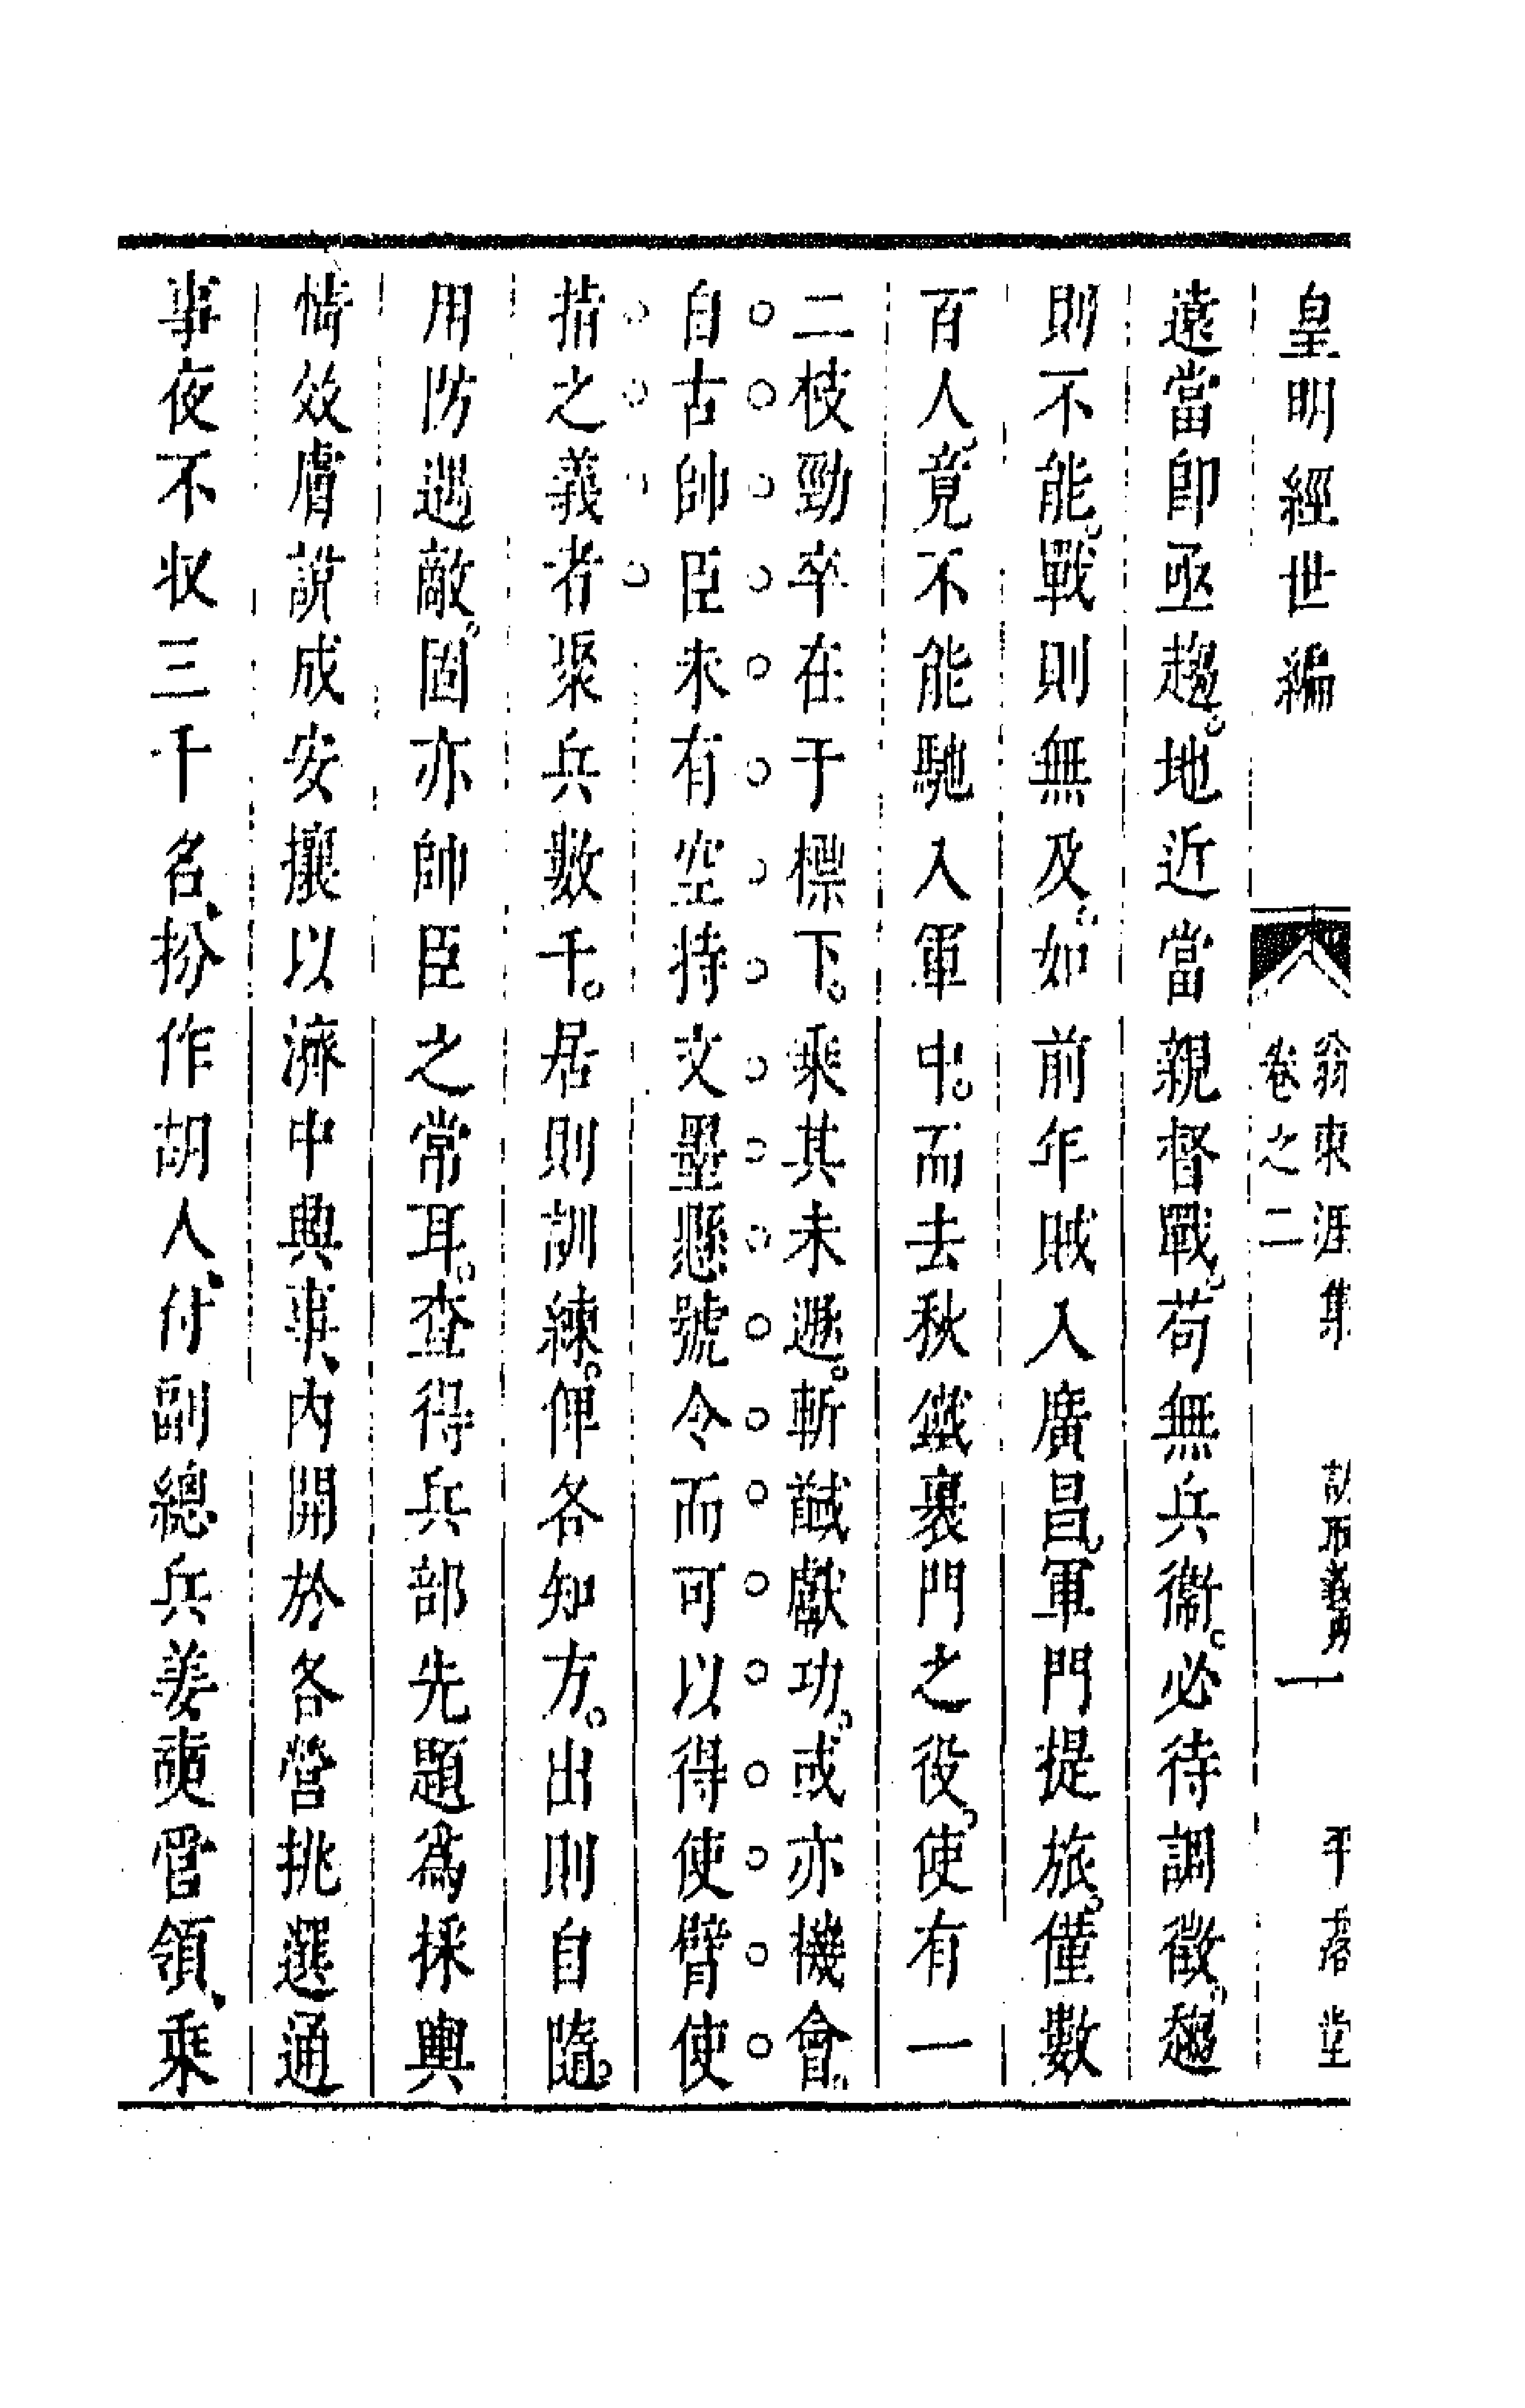 皇明經世編
翁東涯集
卷之二
一
平露堂
遠當卽亟趨地近當親督戰苟無兵衞必待調徵趨
則不能戰則無及如前年賊入廣昌軍門提旅僅數
百人竟不能馳入軍中而去秋鐵裹門之役使有一
二枝勁卒在于標下乘其未遯斬馘獻功或亦機會
自古帥臣未有空持文墨懸號令而可以得使臂使
指之義者聚兵數千居則訓練俾各知方出則自隨
用防遇敵固亦帥臣之常耳查得兵部先題爲採輿
情效膚說成安攘以濟中興事內開於各營挑選通
事夜不收三千名扮作胡人付副總兵姜奭管領乘